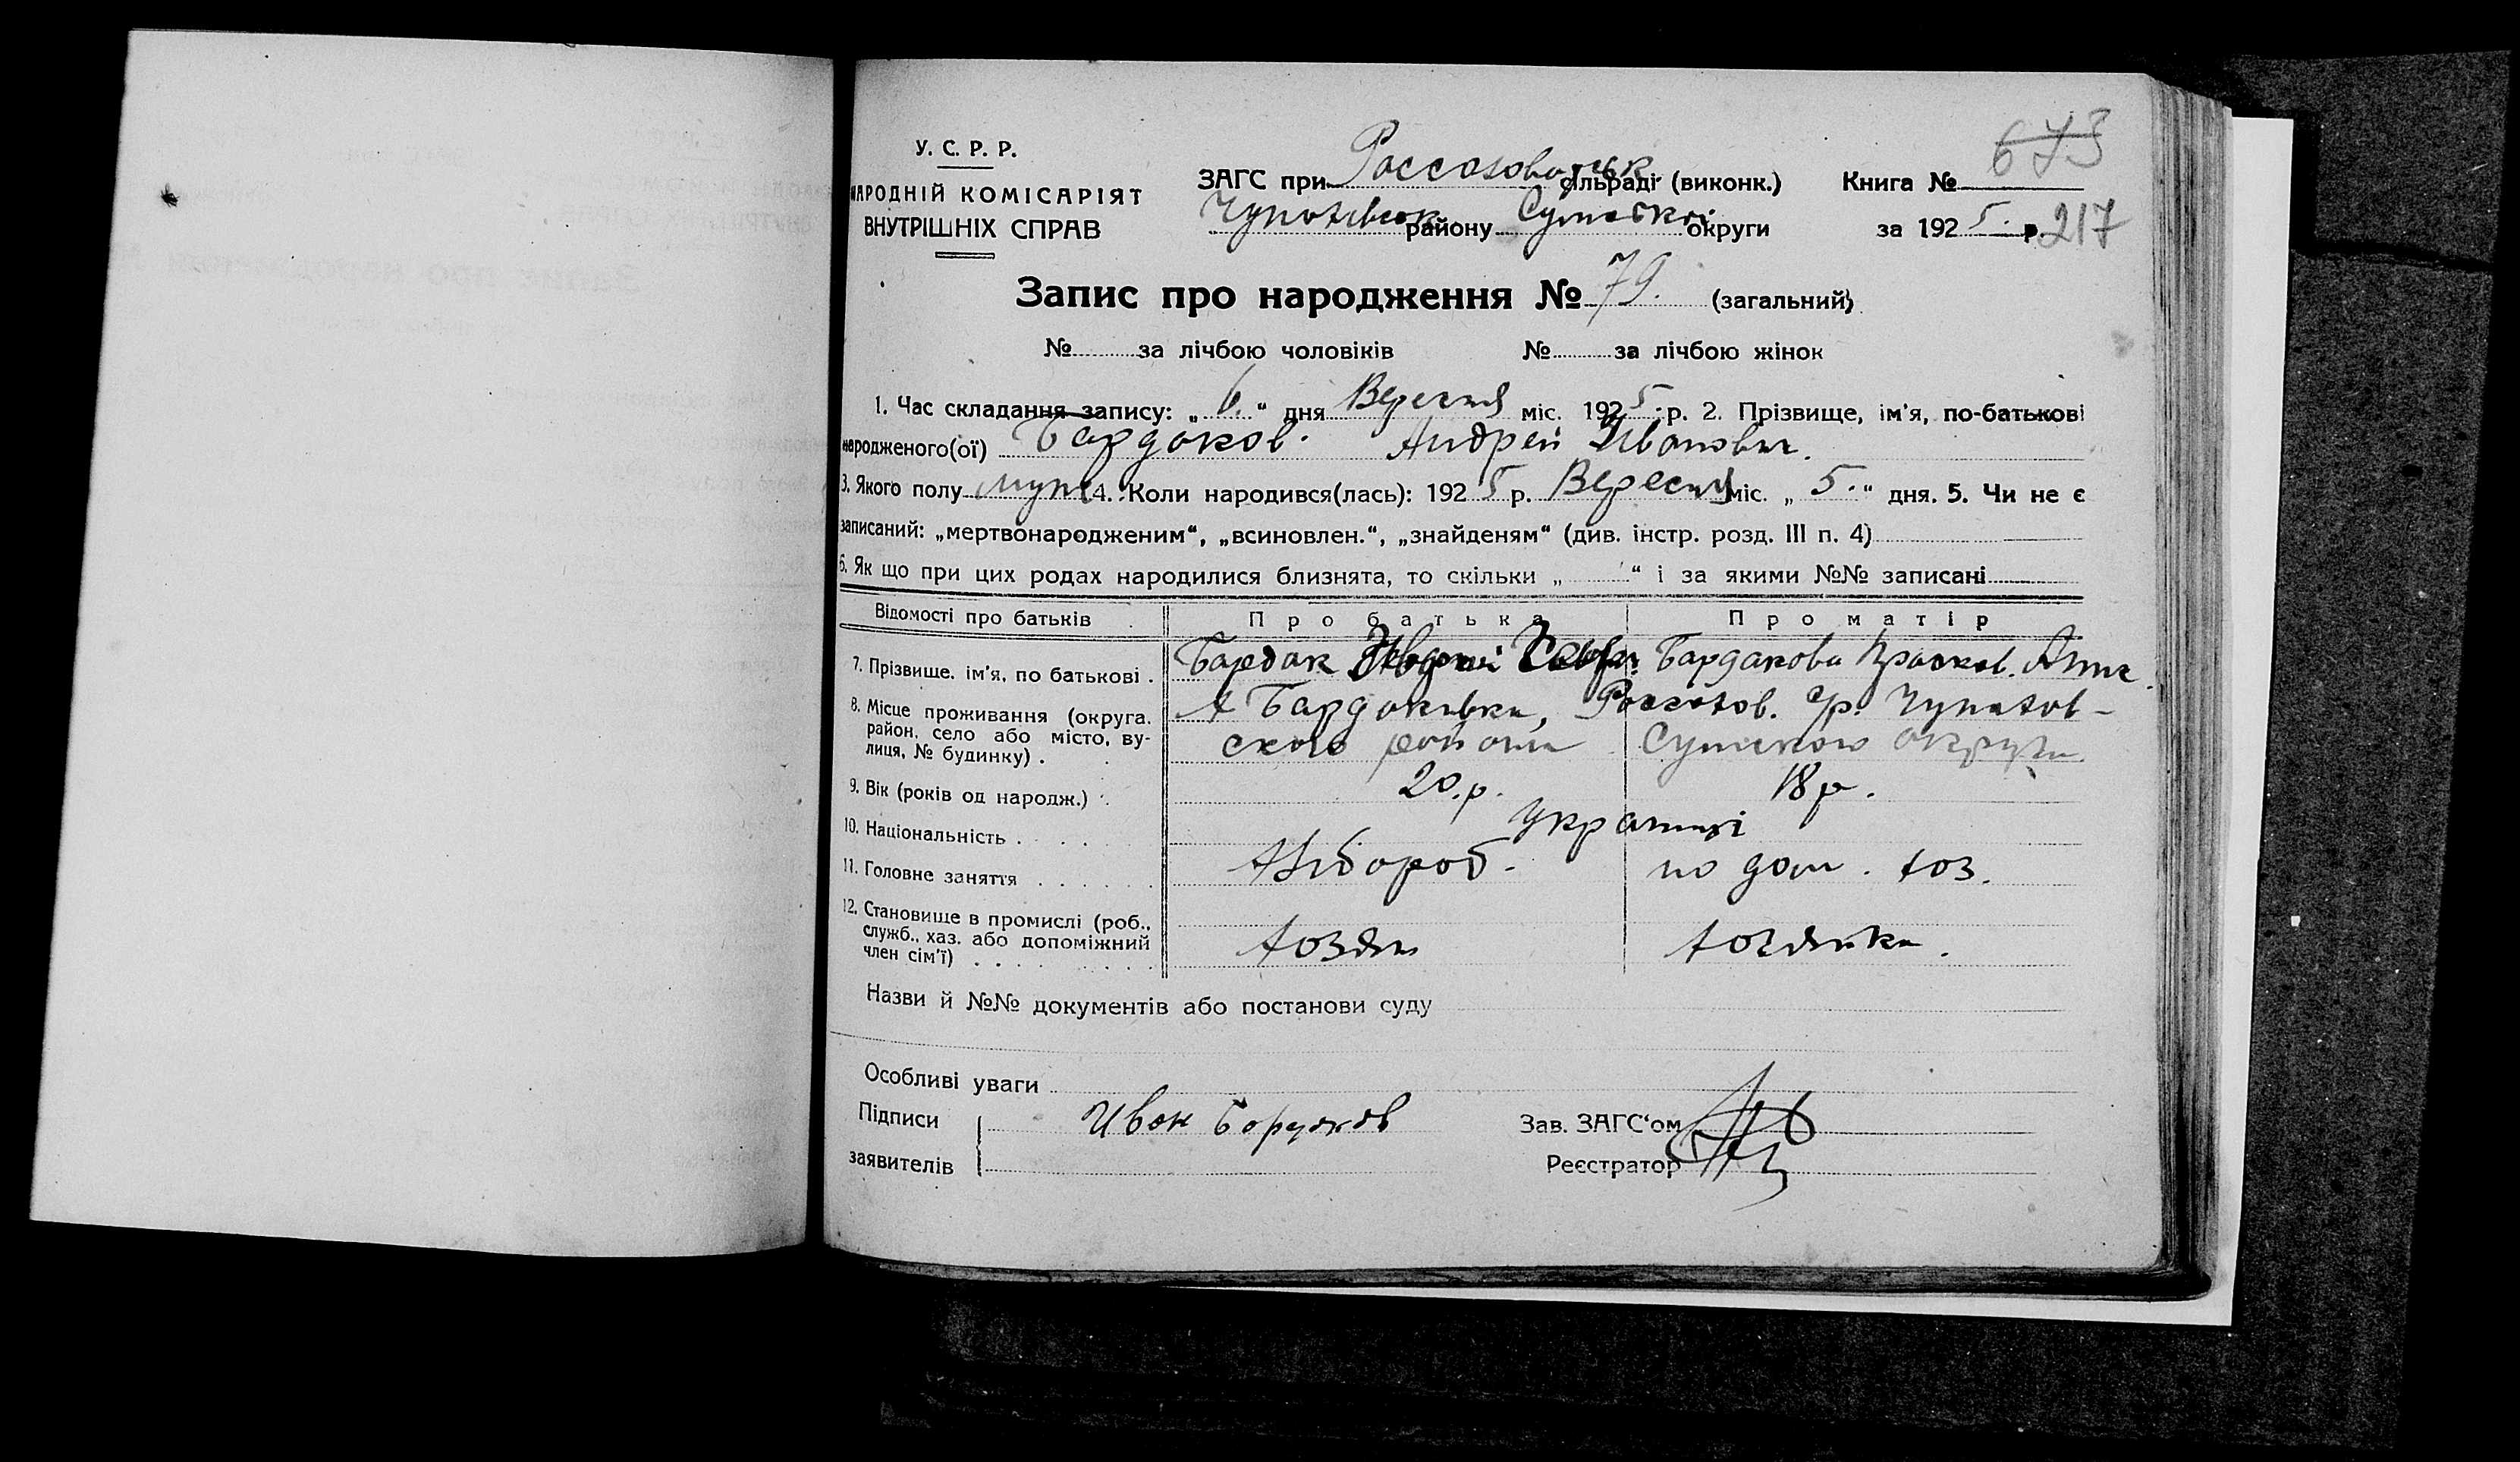 У. С. Р. Р.
НАРОДНІЙ КОМІСАРІЯТ
ВНУТРІШНІХ СПРАВ
ЗАГС при сільраді (виконк.)
району Сумської округи
Книга № 673
за 1925 р. 217
Запис про народження № 79. (загальний)
№ за лічбою чоловіків № за лічбою жінок
1. Час складання запису: „6.“ дня Вересня міс. 1925 р. 2. Прізвище, ім'я, по-батькові
народженого(ої) Бардаков. Андрей Иванович.
3. Якого полу муж 4. Коли народився(лась): 1925 р. Вересня міс. „5.“ дня. 5. Чи не є
записаний: „мертвонародженим“, „всиновлен.“, „знайденям“ (див. інстр. розд. III п. 4)
6. Як що при цих родах народилися близнята, то скільки „ “ і за якими №№ записані
Відомості про батьків Про батька Про матір
7. Прізвище, ім'я, по батькові . Бардак Бардакова
8. Місце проживання (округа, район, село або місто, ву-
лиця, № будинку) . х Бардаківка, Сумского округи.
9. Вік (років од народж.) . 20.р. 18 р.
10. Національність . . . . Українці
11. Головне заняття . . . . . . Хлібороб. по дом. хоз.
12. Становище в промислі (роб.,
служб., хаз. або допоміжний
член сім'ї) . . . . . . . . хозяин хозяйка.
Назви й №№ документів або постанови суду
Особливі уваги
Підписи Иван Бардаков Зав. ЗАГС‘ом
заявителів Реєстратор